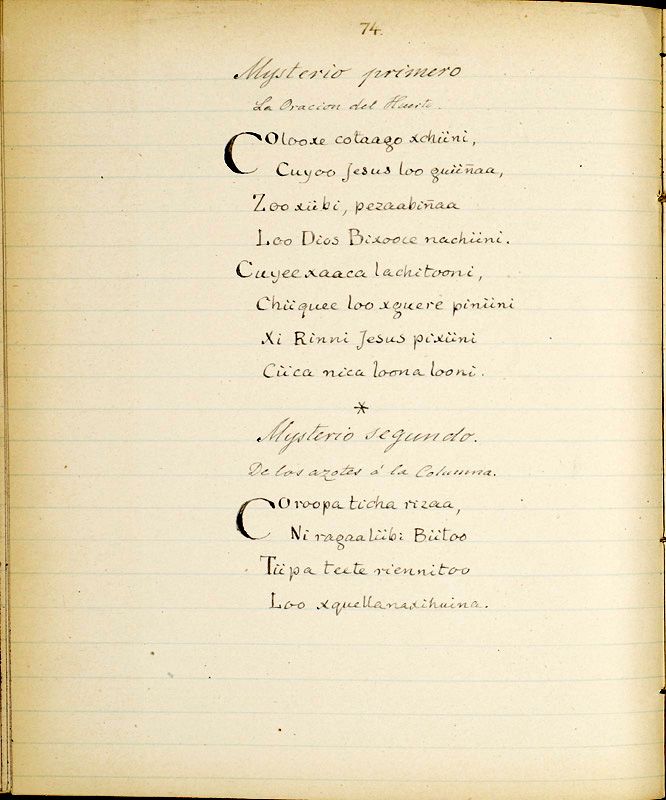 74.
Mysterio primero
La Oracion del Huerto.
Colooxe cotaago xchiini,
Cuyoo Jesus loo guiiñaa,
Zoo xiibi, pezaabiñaa
Loo Dios Bixooce nachiini.
Cuyee xaaca lachitooni,
Chiiquee loo xguere piniini
Xi Rinni Jesus pixiini
Ciica nica loona looni.
*
Mysterio segundo.
De los azotes á la Columna.
Coroopa ticha rizaa,
Ni ragaaliibi Biitoo
Tiipa teete riennitoo
Loo xquellanaxihuina.